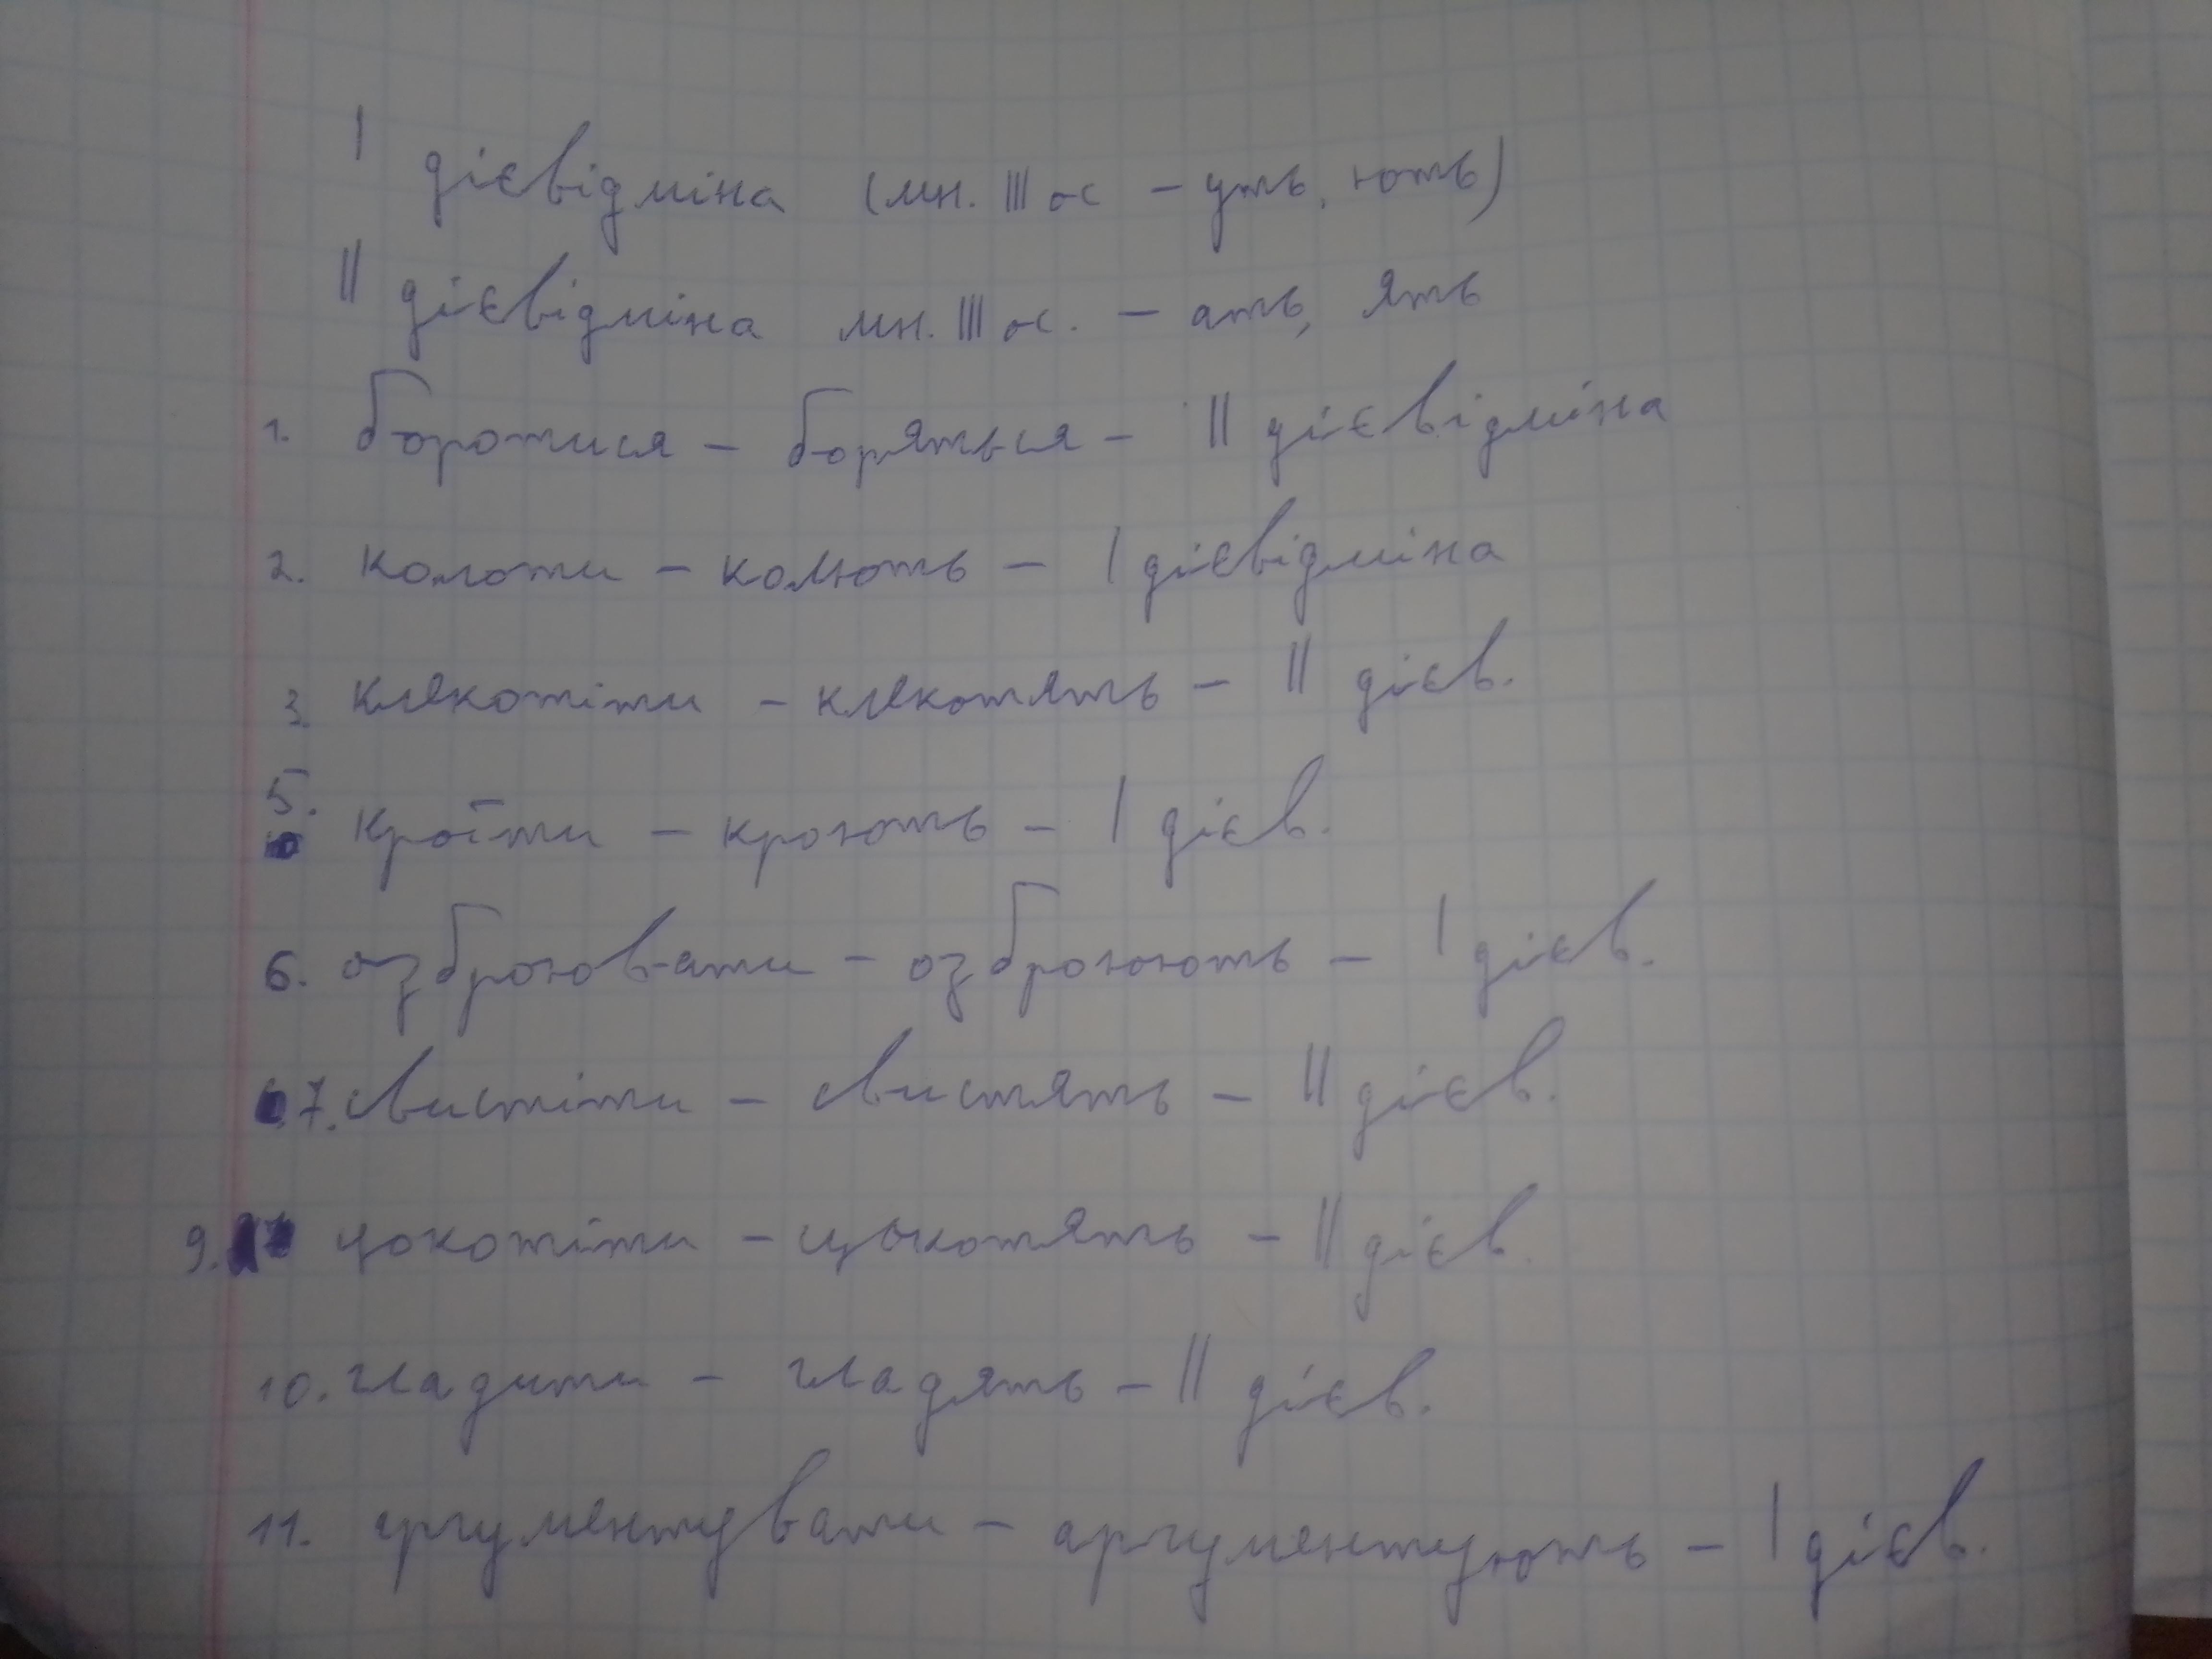 I дієвідміна (мн. III ос – уть, ють)
II дієвідміна мн. III ос. – ать, ять
1. боротися – боряться – II дієвідміна
2. колоти – колють – I дієвідміна
3. клекотіти – клекотять – II дієв.
5. кроїти – кроють – I дієв.
6. озброювати – озброюють – I дієв.
7. свистіти – свистять – II дієв.
9. цокотіти – цокотять – II дієв.
10. гладити – гладять – II дієв.
11. аргументувати – аргументують – I дієв.